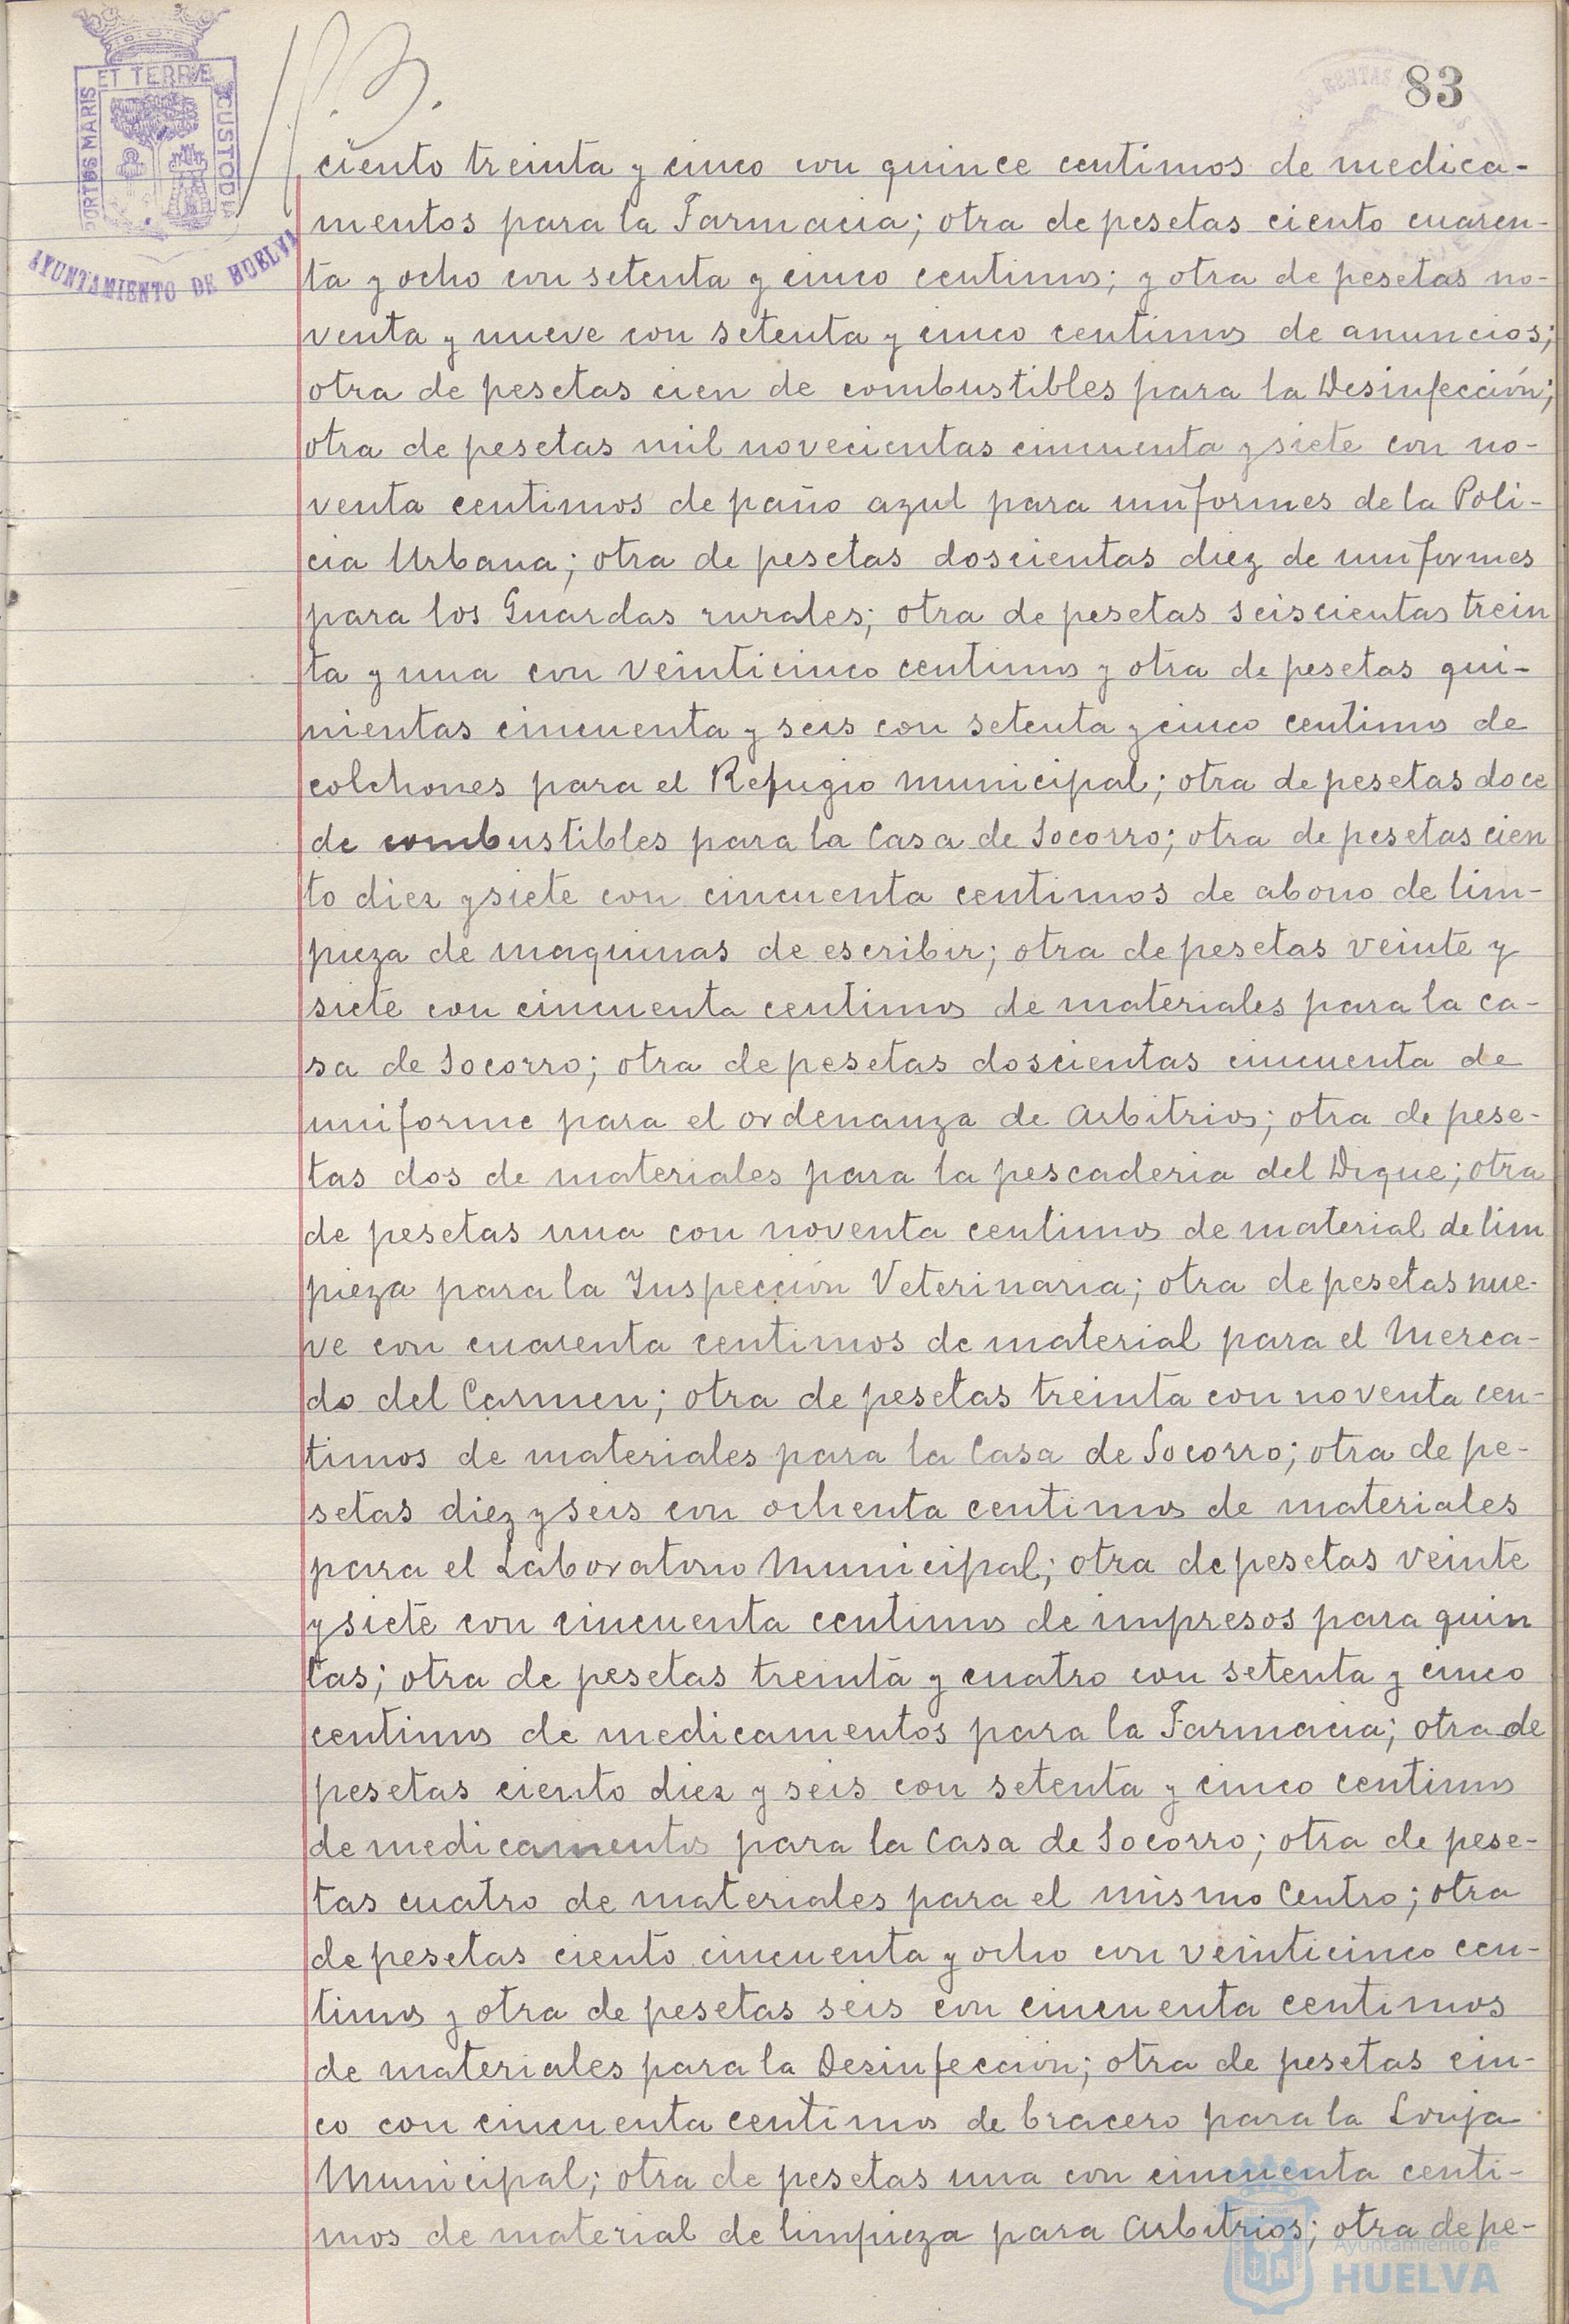 83
PORTUS MARIS ET TERRÆ CUSTODIA
AYUNTAMIENTO DE HUELVA
ciento treinta y cinco con quince centimos de medica-
mentos para la Farmacia; otra de pesetas ciento cuaren-
ta y ocho con setenta y cinco centimos; y otra de pesetas no-
venta y nueve con setenta y cinco centimos de anuncios;
otra de pesetas cien de combustibles para la Desinfección;
otra de pesetas mil novecientas cincuenta y siete con no-
venta centimos de paño azul para uniformes de la Poli-
cia Urbana; otra de pesetas doscientas diez de uniformes
para los Guardas rurales; otra de pesetas seiscientas trein
ta y una con veinticinco centimos y otra de pesetas qui-
nientas cincuenta y seis con setenta y cinco centimos de
colchones para el Refugio Municipal; otra de pesetas doce
de combustibles para la Casa de Socorro; otra de pesetas cien
to diez y siete con cincuenta centimos de abono de lim-
pieza de maquinas de escribir; otra de pesetas veinte y
siete con cincuenta centimos de materiales para la ca-
sa de Socorro; otra de pesetas doscientas cincuenta de
uniforme para el ordenanza de Arbitrios; otra de pese-
tas dos de materiales para la pescaderia del Dique; otra
de pesetas una con noventa centimos de material de lim
pieza para la Inspección Veterinaria; otra de pesetas nue-
ve con cuarenta centimos de material para el Merca-
do del Carmen; otra de pesetas treinta con noventa cen-
timos de materiales para la Casa de Socorro; otra de pe-
setas diez y seis con ochenta centimos de materiales
para el Laboratorio Municipal; otra de pesetas veinte
y siete con cincuenta centimos de impresos para quin
tas; otra de pesetas treinta y cuatro con setenta y cinco
centimos de medicamentos para la Farmacia; otra de
pesetas ciento diez y seis con setenta y cinco centimos
de medicamentos para la Casa de Socorro; otra de pese-
tas cuatro de materiales para el mismo Centro; otra
de pesetas ciento cincuenta y ocho con veinticinco cen-
timos y otra de pesetas seis con cincuenta centimos
de materiales para la Desinfección; otra de pesetas cin-
co con cincuenta centimos de bracero para la Lonja
Municipal; otra de pesetas una con cincuenta centi-
mos de material de limpieza para Arbitrios; otra de pe-
Ayuntamiento de
HUELVA